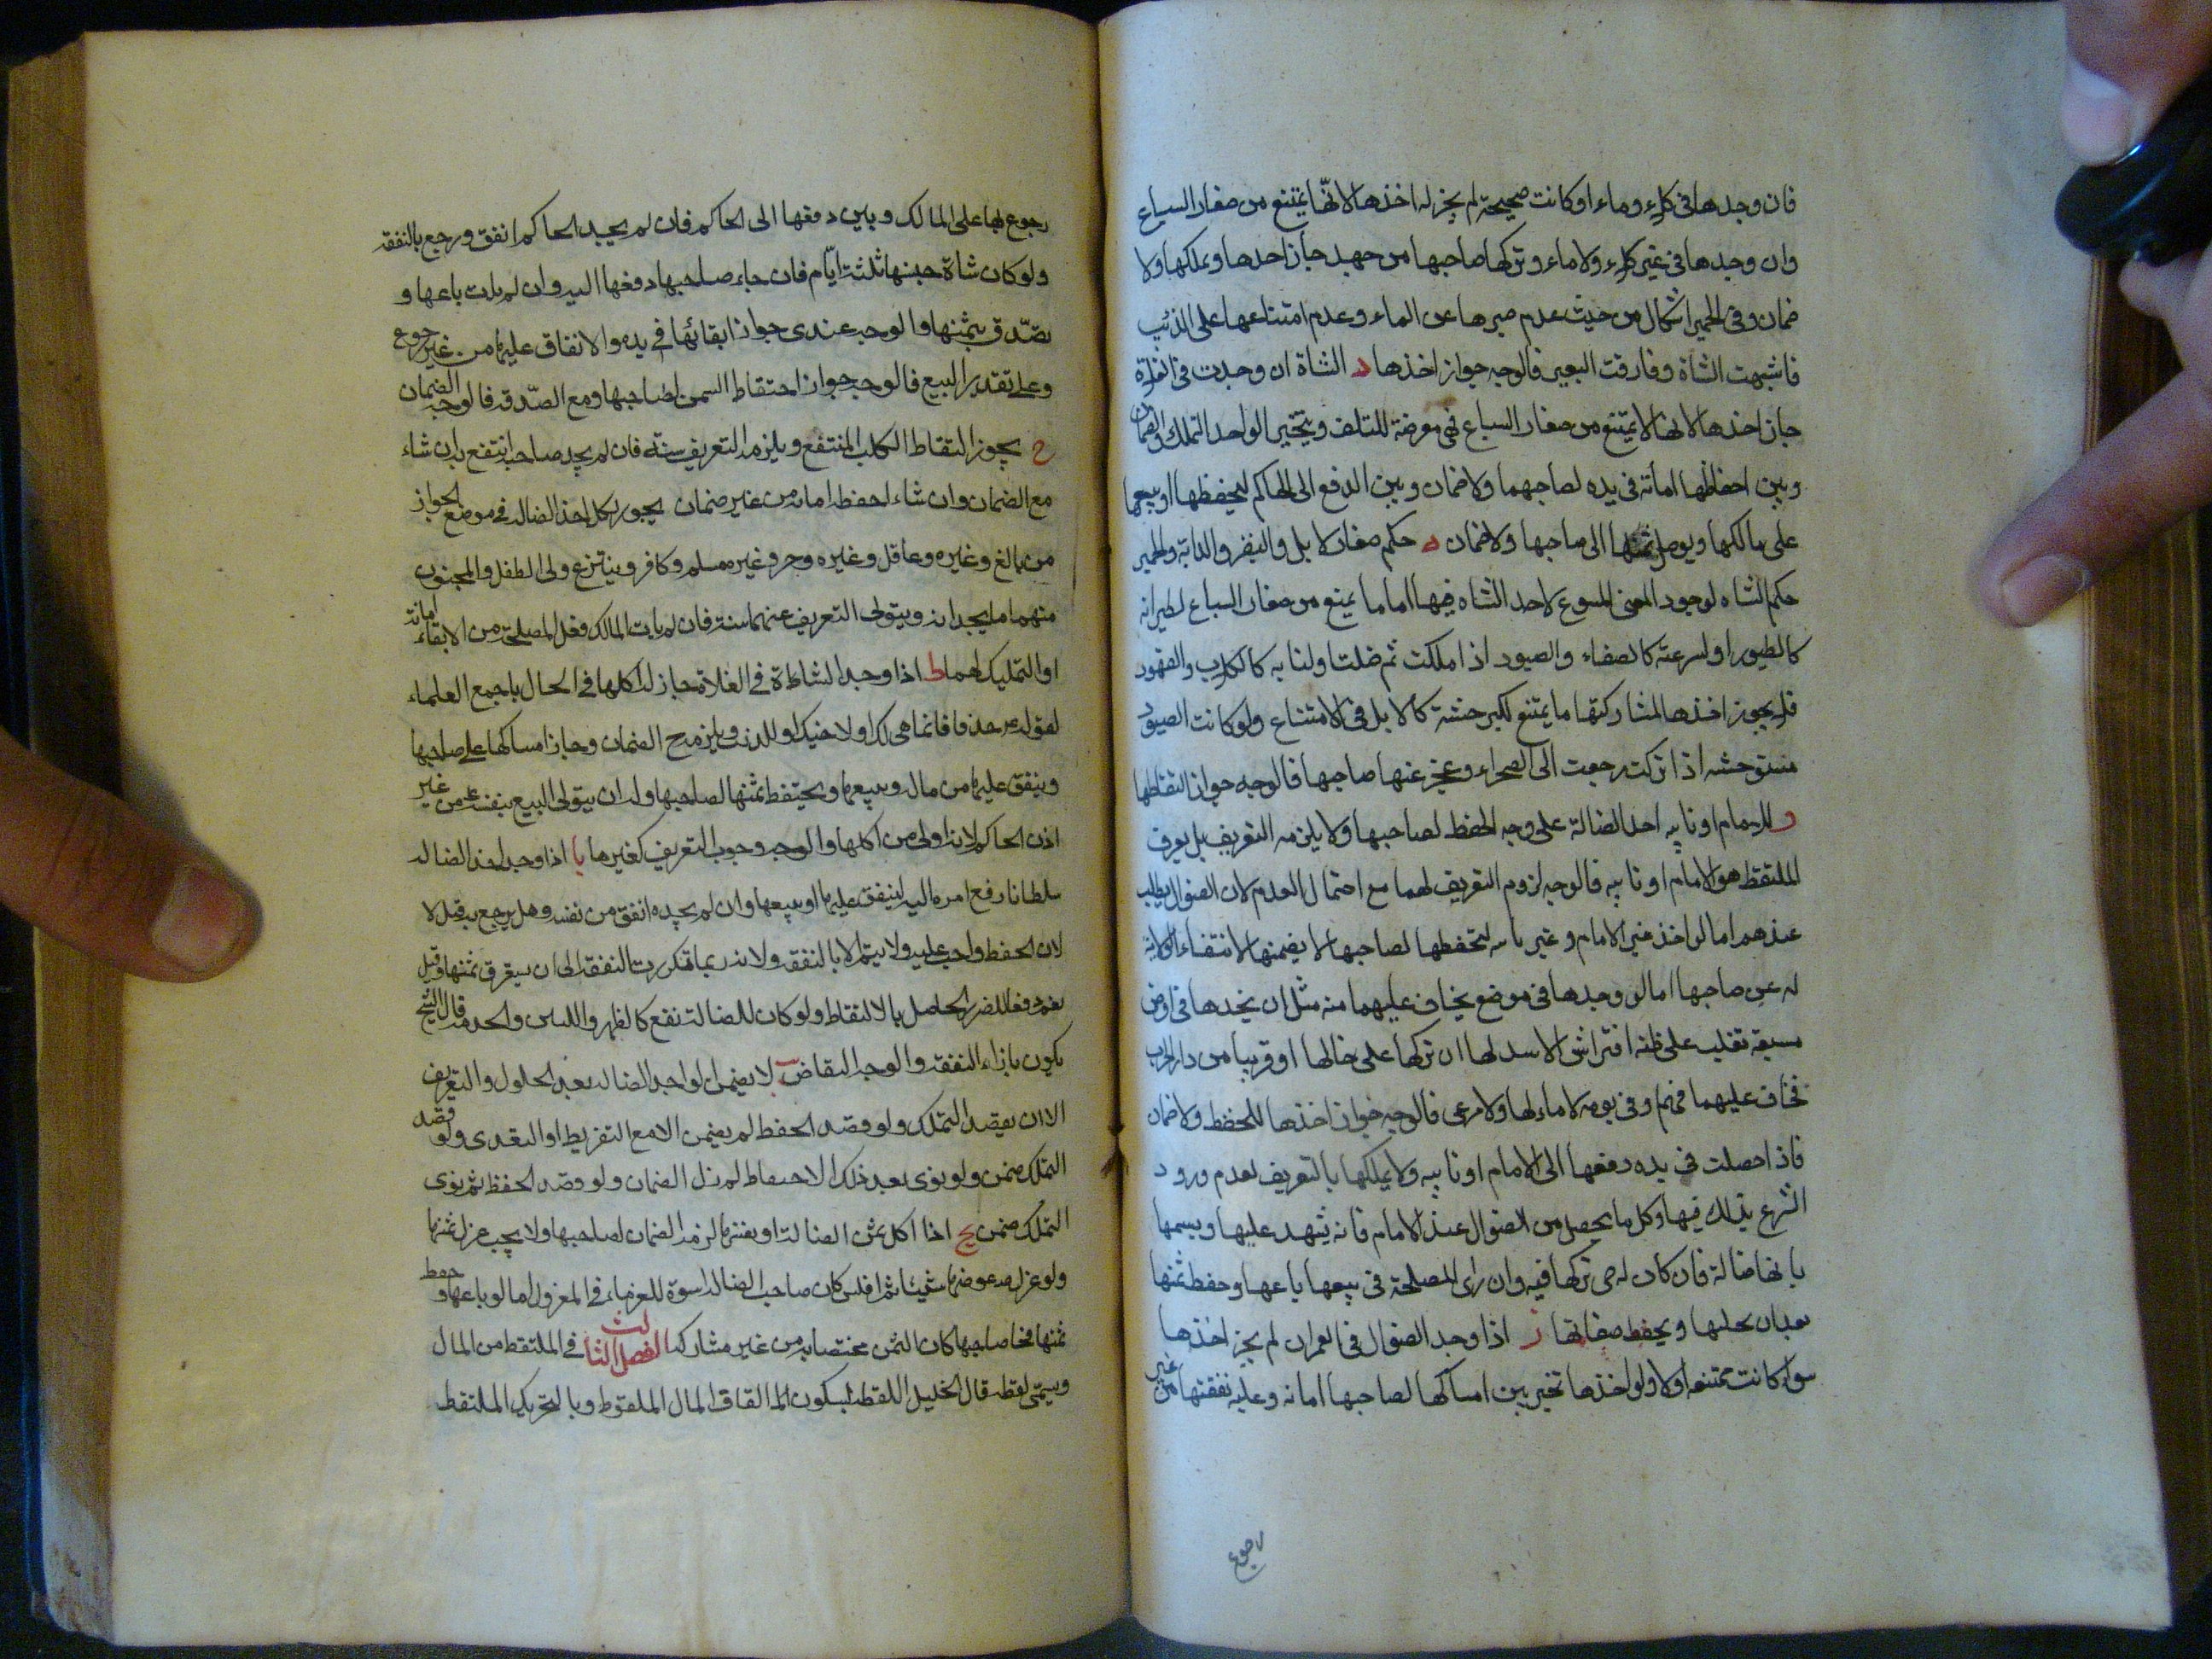 فان وجدها فى كلاء وماء او كانت صحيحة لم يجز له اخذها لانّها يمتنع من صغار السباع
وان وجدها فى غير كلاء ولا ماء وتركها صاحبها من جهد جاز احدها ويملكها ولا
ضمان وفى الحمير اشكال من حيث عدم صبرها عن الماء وعدم امتناعها على الذئب
فاشبهت الشاة وفارقت البعير فالوجه جواز اخذها د الشاة ان وجدت فى الفلاة
جاز اخذها لانها لا يمتنع من صغار السباع فهى معرضة للتلف ويتخير الواحد التملك والضمان
وبين احفاظها امانة فى يده لصاحبها ولا ضمان وبين الدفع الى الحاكم ليحفظها او يبيعها
على مالكها ويوصل ثمنها الى صاحبها ولا ضمان ه حكم صغار الابل والبقر والدابة والحمير
حكم الشاه لوجود المعنى المسوغ لاحد الشاه فيها اما ما يمنع من صغار السباع لطيرانه
كالطيور او لسرعته كالضباء والصيود اذا ملكت ثم ضلت اولنابه كالكلاب والفهود
فلا يجوز اخذها لمشاركتها ما يمتنع لكبر جثته كالابل فى الامتناع ولو كانت الصيود
مستوحشه اذا تركت رجعت الى الصحراء وعجز عنها صاحبها فالوجه جواز التقاطها
و للامام او نايبه احد الضالة على وجه الحفظ لصاحبها ولا يلزمه التعريف بل يعرف
الملتقط هو الامام او نايبه فالوجه لزوم التعريف لهما مع احتمال العدم لان الضوال يطلب
عندهم اما لو اخذ غير الامام وغير نايبه ليحفظها لصاحبها لا يضمنها لانتفاء الولاية
له عن صاحبها اما لو وجدها فى موضع يخاف عليهما منه مثل ان يجدها فى ارض
مسبعه تغلب على ظنه افتراش الاسد لها ان تركها على حالها او قريبا من دار الحرب
فخاف عليهما فى بريه لا ماء لها ولا مرعى فالوجه جواز اخذها للحفظ ولا ضمان
فاذا حصلت فى يده دفعها الى الامام او نايبه ولا يملكها بالتعريف لعدم ورود
الشرع بذلك فيها وكل ما يحصل من الضوال عند الامام فانه يشهد عليها ويسمها
بانها ضالة فان كان له حمى تركها فيه وان راى المصلحة فى بيعها باعها وحفظ ثمنها
بعد ان يحليها ويحفظ صفاتها ز اذا وجد الضوال فى العمران لم يجز اخذها
سواء كانت ممتنعه اولا ولو اخذها تخير بين امساكها لصاحبها امانه وعليه نفقتها من غير
رجوع بها على المالك وبين دفعها الى الحاكم فان لم يجد الحاكم انفق ورجع بالنفقة
ولو كان شاة حبسها ثلثة ايّام فان جاء صاحبها دفعها اليه وان لم يات باعها و
تصّدق بثمنها والوجه عندى جواز ابقائها فى يده والانفاق عليها من غير رجوع
وعلى تقدير البيع فالوجه جواز احتفاظ الثمن لصاحبها ومع الصّدقه فالوجه الضمان
ح يجوز التقاط الكلب المنتفع ويلزمه التعريف سنّة فان لم يجد صاحبه انتفع به ان شاء
مع الضمان وان شاء احفظه امانه من غير ضمان يجوز لكل احد اخذ الضاله فى موضع الجواز
من بالغ وغيره وعاقل وغيره وحر وغيره مسلم وكافر وينتزع ولى الطفل والمجنون
منهما ما يجدانه ويتولى التعريف عنهما سنة فان لم يات المالك فعل المصلحة من الابقاء امانة
او التمليك لهما ط اذا وجد الشاة فى الفلاة جاز له اكلها فى الحال باجمع العلماء
لقوله ع خذها فانما هى لك او لاخيك او للذئب ويلزمه ح الضمان وجاز امساكها على صاحبها
وينفق عليها من ماله وبيعها ويحتفظ بثمنها لصاحبها وله ان يتولى البيع بنفسه من غير
اذن الحاكم لانه اولى من اكلها والوجه وجوب التعريف كغيرها يا اذا وجد اخذ الضاله
سلطانا رفع امره اليه لينفق عليها او بيعها وان لم يجده انفق من نفسه وهل يرجع به قيل لا
لان الحفظ واجب عليه ولا يتم الا بالنفقه ولانه ربما تكررت النفقة الى ان يستغرق ثمنها وقيل
نعم دفعا للضرر الحاصل بالالتقاط ولو كان للضالة نفع كالظهر واللبن والخدمه قال الشيخ
يكون بازاء النفقه والوجه التقاض يب لا يضمن الواجد الضاله بعد الحلول والتعريف
الا ان يقصد التملك ولو قصد الحفظ لم يضمن الا مع التفريط او التعدى ولو قصد
التملك ضمن ولو نوى بعد ذلك الاحتفاظ لم يزل الضمان ولو قصد الحفظ ثم نوى
التملك ضمن يج اذا اكل ثمن الضالة او نفسها لزمه الضمان لصاحبها ولا يجب عزل ثمنها
ولو عزله عوضها شيئا ثم افلس كان صاحب الضاله اسوة للغرماء فى المعزول اما لو باعها وحفظ
ثمنها فجا صاحبها كان الثمن مختصا به من غير مشاركه الفصل الثالث فى الملتقط من المال
ويسمّى لقطه قال الخليل اللقطه بسكون القاف المال الملقوط وبالتحريك الملتقط
رجوع